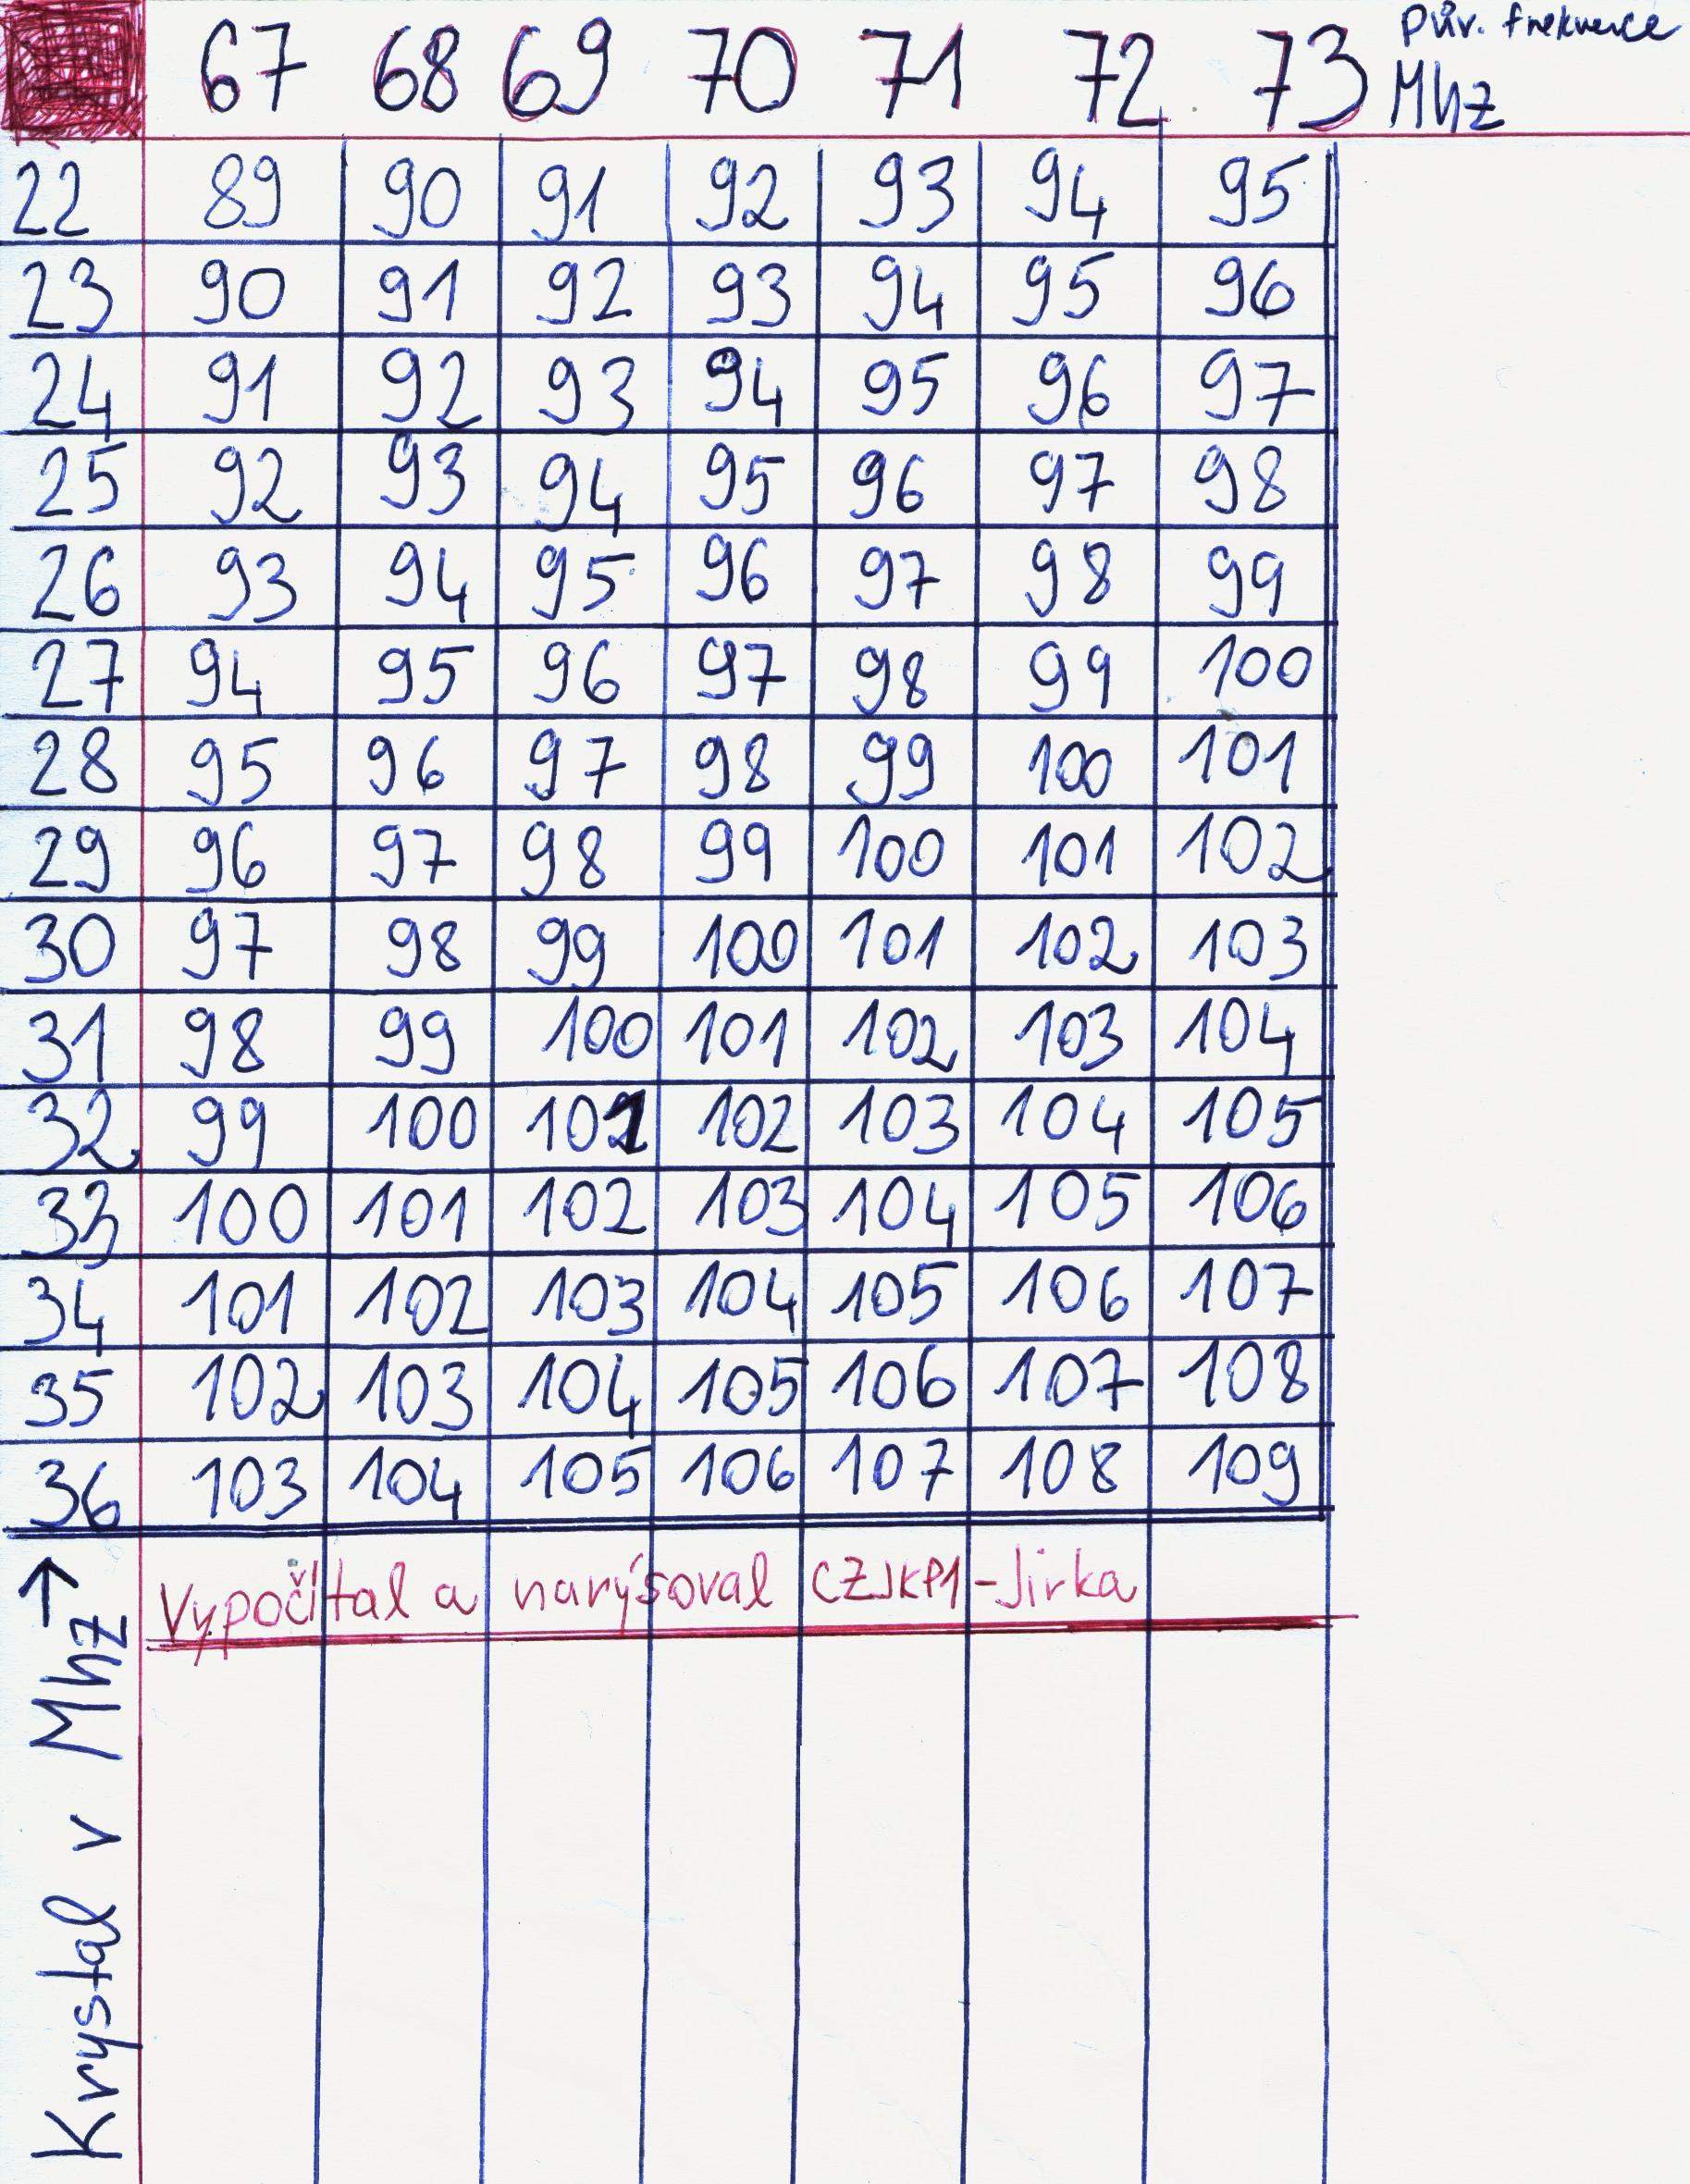 67 68 69 70 71 72 73 Pův. frekvence
Mhz
22 89 90 91 92 93 94 95
23 90 91 92 93 94 95 96
24 91 92 93 94 95 96 97
25 92 93 94 95 96 97 98
26 93 94 95 96 97 98 99
27 94 95 96 97 98 99 100
28 95 96 97 98 99 100 101
29 96 97 98 99 100 101 102
30 97 98 99 100 101 102 103
31 98 99 100 101 102 103 104
32 99 100 101 102 103 104 105
33 100 101 102 103 104 105 106
34 101 102 103 104 105 106 107
35 102 103 104 105 106 107 108
36 103 104 105 106 107 108 109
Vypočítal a narýsoval CZJKP1-Jirka
Krystal v Mhz →